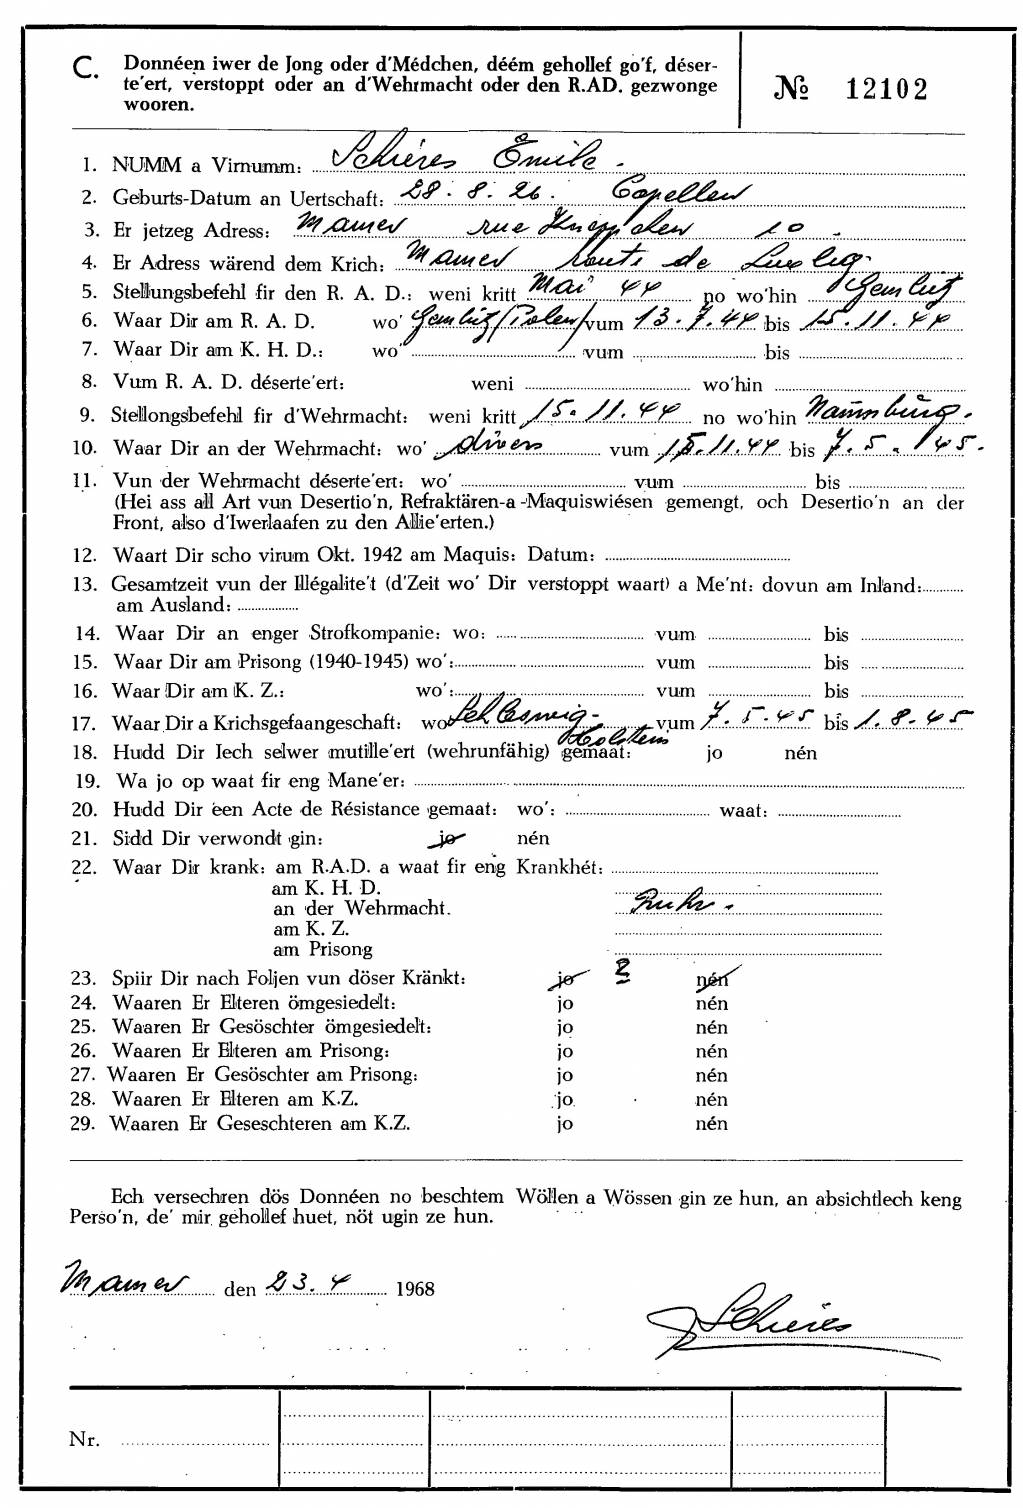 C. Donnéen iwer de Jong oder d'Médchen, déém gehollef go'f, déser-
te'ert, verstoppt oder an d'Wehrmacht oder den R.AD. gezwonge
wooren.
№ 12102
1. NUMM a Virnumm: Schieres Emile.
2. Geburts-Datum an Uertschaft: 28. 8. 26. Capellen
3. Er jetzeg Adress: Mamer rue Knepchen 10.
4. Er Adress wärend dem Krich: Mamer Route de Luxbg.
5. Stellungsbefehl fir den R. A. D.: weni kritt Mai 44 no wo'hin Gembitz
6. Waar Dir am R. A. D. wo' Gembitz/Polen/ vum 13.7.44 bis 15.11.44
7. Waar Dir am K. H. D.: wo' vum bis
8. Vum R. A. D. déserte'ert: weni wo'hin
9. Stellongsbefehl fir d'Wehrmacht: weni kritt 15.11.44 no wo'hin Naumburg.
10. Waar Dir an der Wehrmacht: wo' divers vum 15.11.44 bis 7.5.45.
11. Vun der Wehrmacht déserte'ert: wo' vum bis
(Hei ass all Art vun Desertio'n, Refraktären-a-Maquiswiésen gemengt, och Desertio'n an der
Front, also d'Iwerlaafen zu den Allie'erten.)
12. Waart Dir scho virum Okt. 1942 am Maquis: Datum:
13. Gesamtzeit vun der Illégalite't (d'Zeit wo' Dir verstoppt waart) a Me'nt: dovun am Inland:
am Ausland:
14. Waar Dir an enger Strofkompanie: wo: vum bis
15. Waar Dir am Prisong (1940-1945) wo': vum bis
16. Waar Dir am K. Z.: wo': vum bis
17. Waar Dir a Krichsgefaangeschaft: wo Schleswig- vum 7.5.45 bis 1.8.45
Holstein
18. Hudd Dir Iech selwer mutille'ert (wehrunfähig) gemaat: jo nén
19. Wa jo op waat fir eng Mane'er:
20. Hudd Dir een Acte de Résistance gemaat: wo': waat:
21. Sidd Dir verwondt gin: jo nén
22. Waar Dir krank: am R.A.D. a waat fir eng Krankhét:
am K. H. D.
an der Wehrmacht. Ruhr.
am K. Z.
am Prisong
23. Spiir Dir nach Foljen vun döser Kränkt: jo ? nén
24. Waaren Er Elteren ömgesiedelt: jo nén
25. Waaren Er Gesöschter ömgesiedelt: jo nén
26. Waaren Er Elteren am Prisong: jo nén
27. Waaren Er Gesöschter am Prisong: jo nén
28. Waaren Er Elteren am K.Z. jo nén
29. Waaren Er Geseschteren am K.Z. jo nén
Ech versechren dös Donnéen no beschtem Wöllen a Wössen gin ze hun, an absichtlech keng
Perso'n, de' mir gehollef huet, nöt ugin ze hun.
Mamer den 23.4 1968
Schieres
Nr.